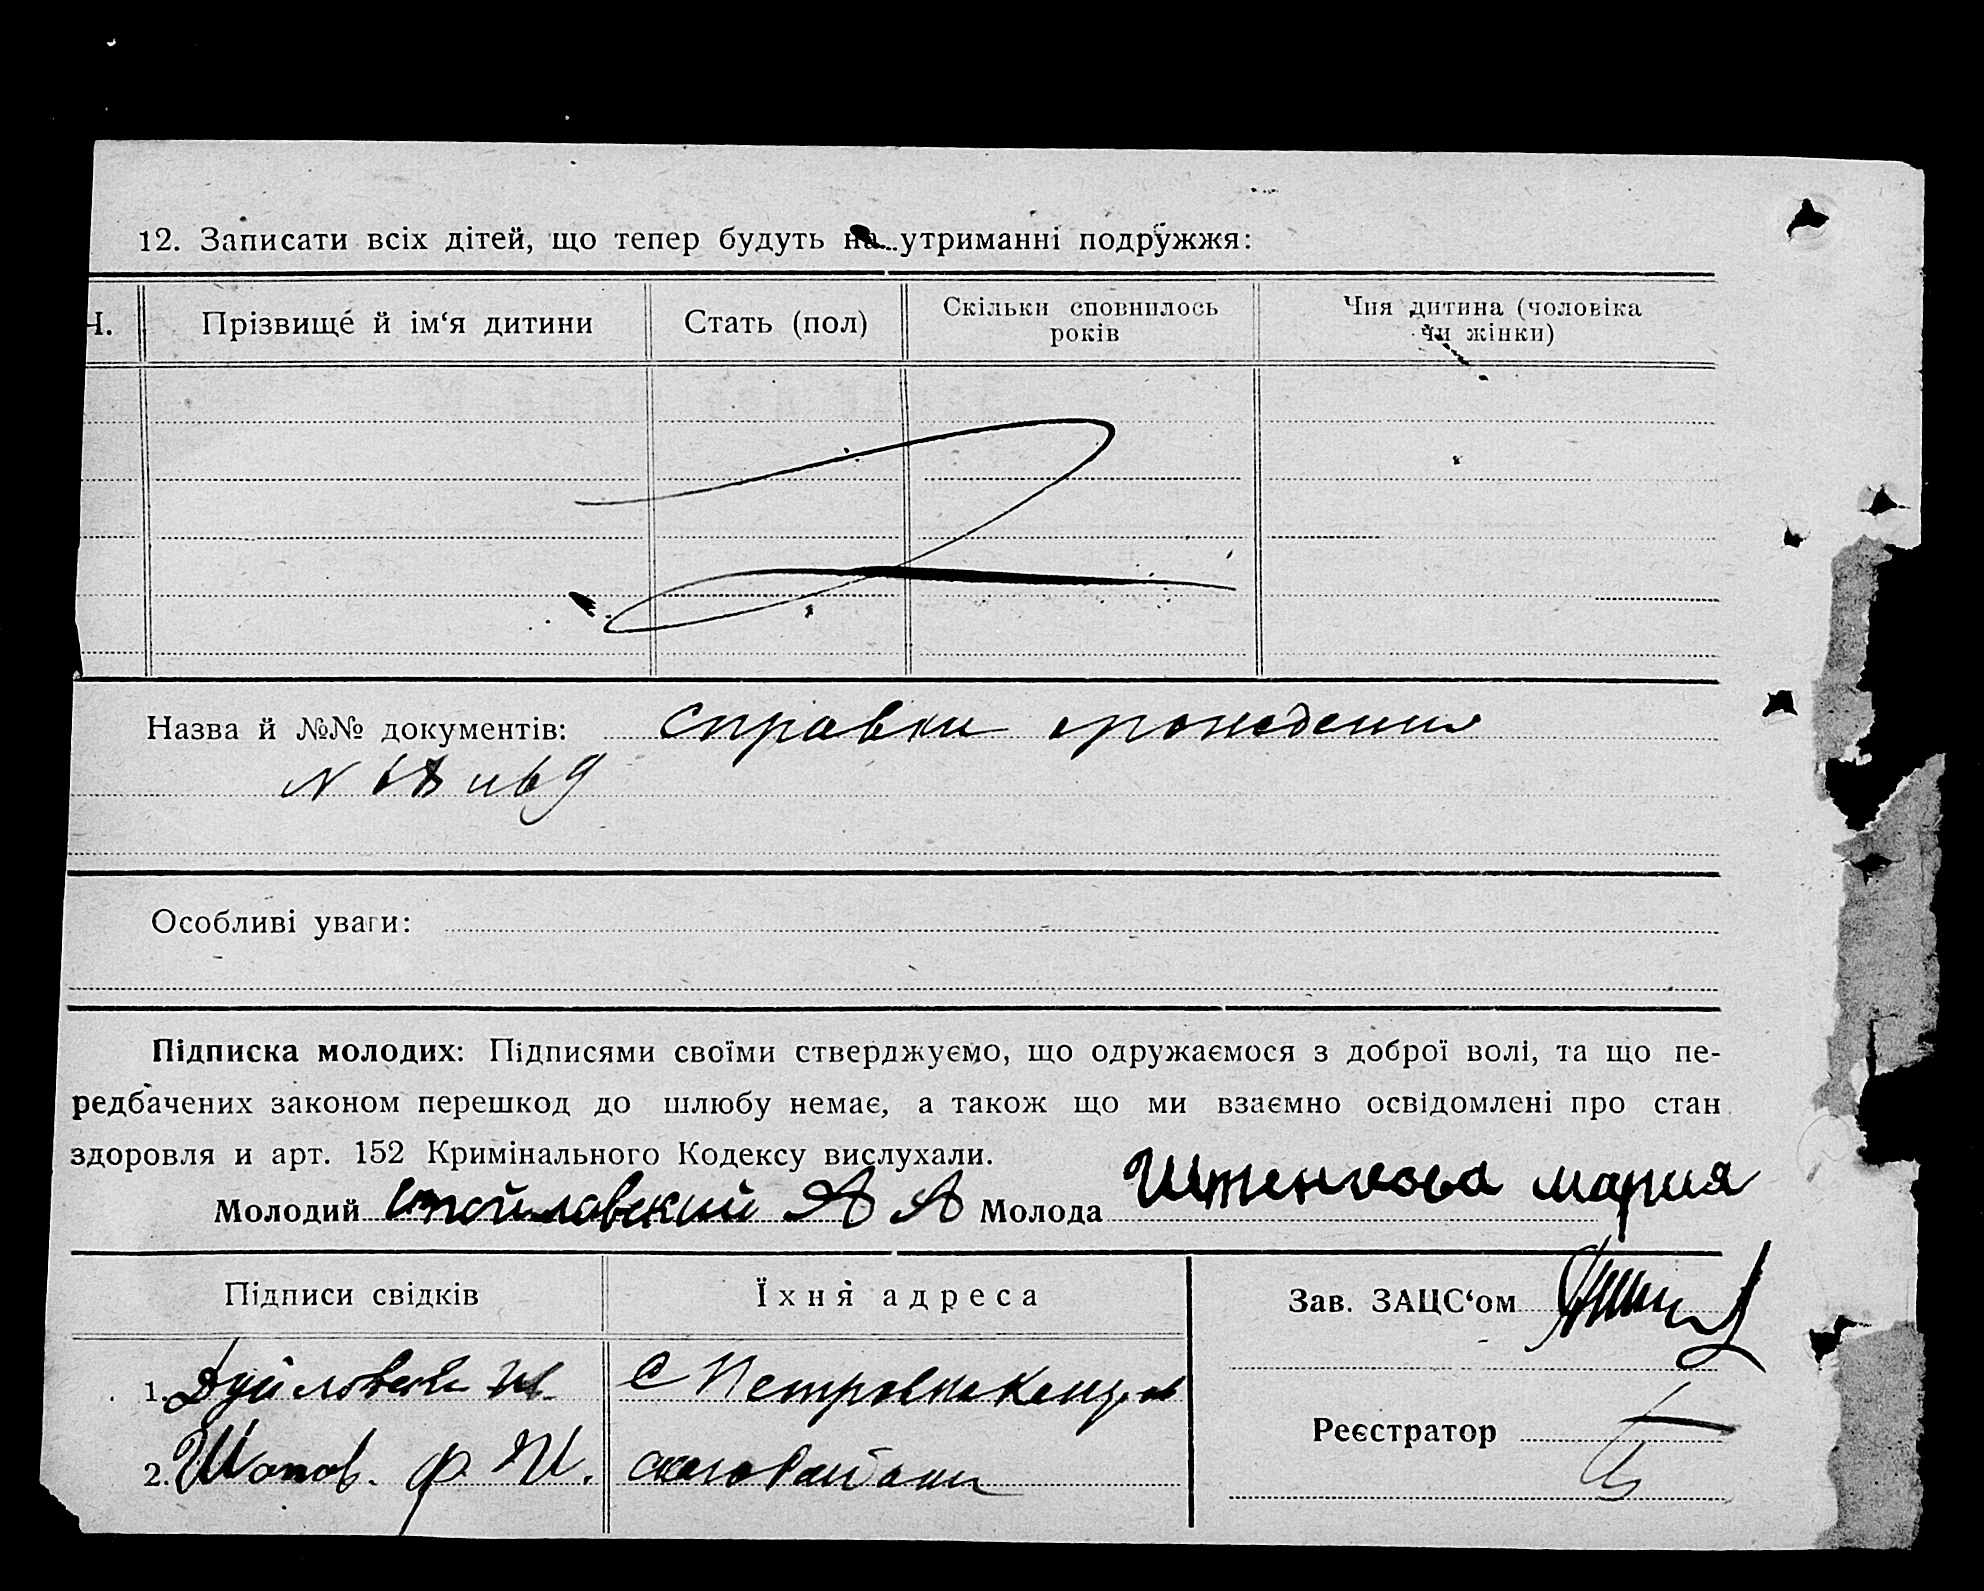 12. Записати всіх дітей, що тепер будуть на утриманні подружжя:
Ч. Прізвище й ім‘я дитини Стать (пол) Скільки сповнилось років Чия дитина (чоловіка чи жінки)
Назва й №№ документів: справки орождения
N 68 и 69
Особливі уваги:
Підписка молодих: Підписями своїми стверджуємо, що одружаємося з доброї волі, та що пе-
редбачених законом перешкод до шлюбу немає, а також що ми взаємно освідомлені про стан
здоровля и арт. 152 Кримінального Кодексу вислухали.
Молодий Стойловский А А Молода Иштенкова мария
Підписи свідків Їхня адреса Зав. ЗАЦС‘ом
1. С
2. Шапов. Ф. И.
Реєстратор